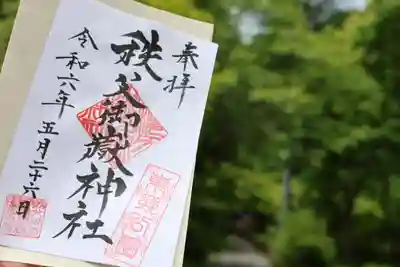 奉拝
秩父御嶽神社
令和六年 五月二十六日